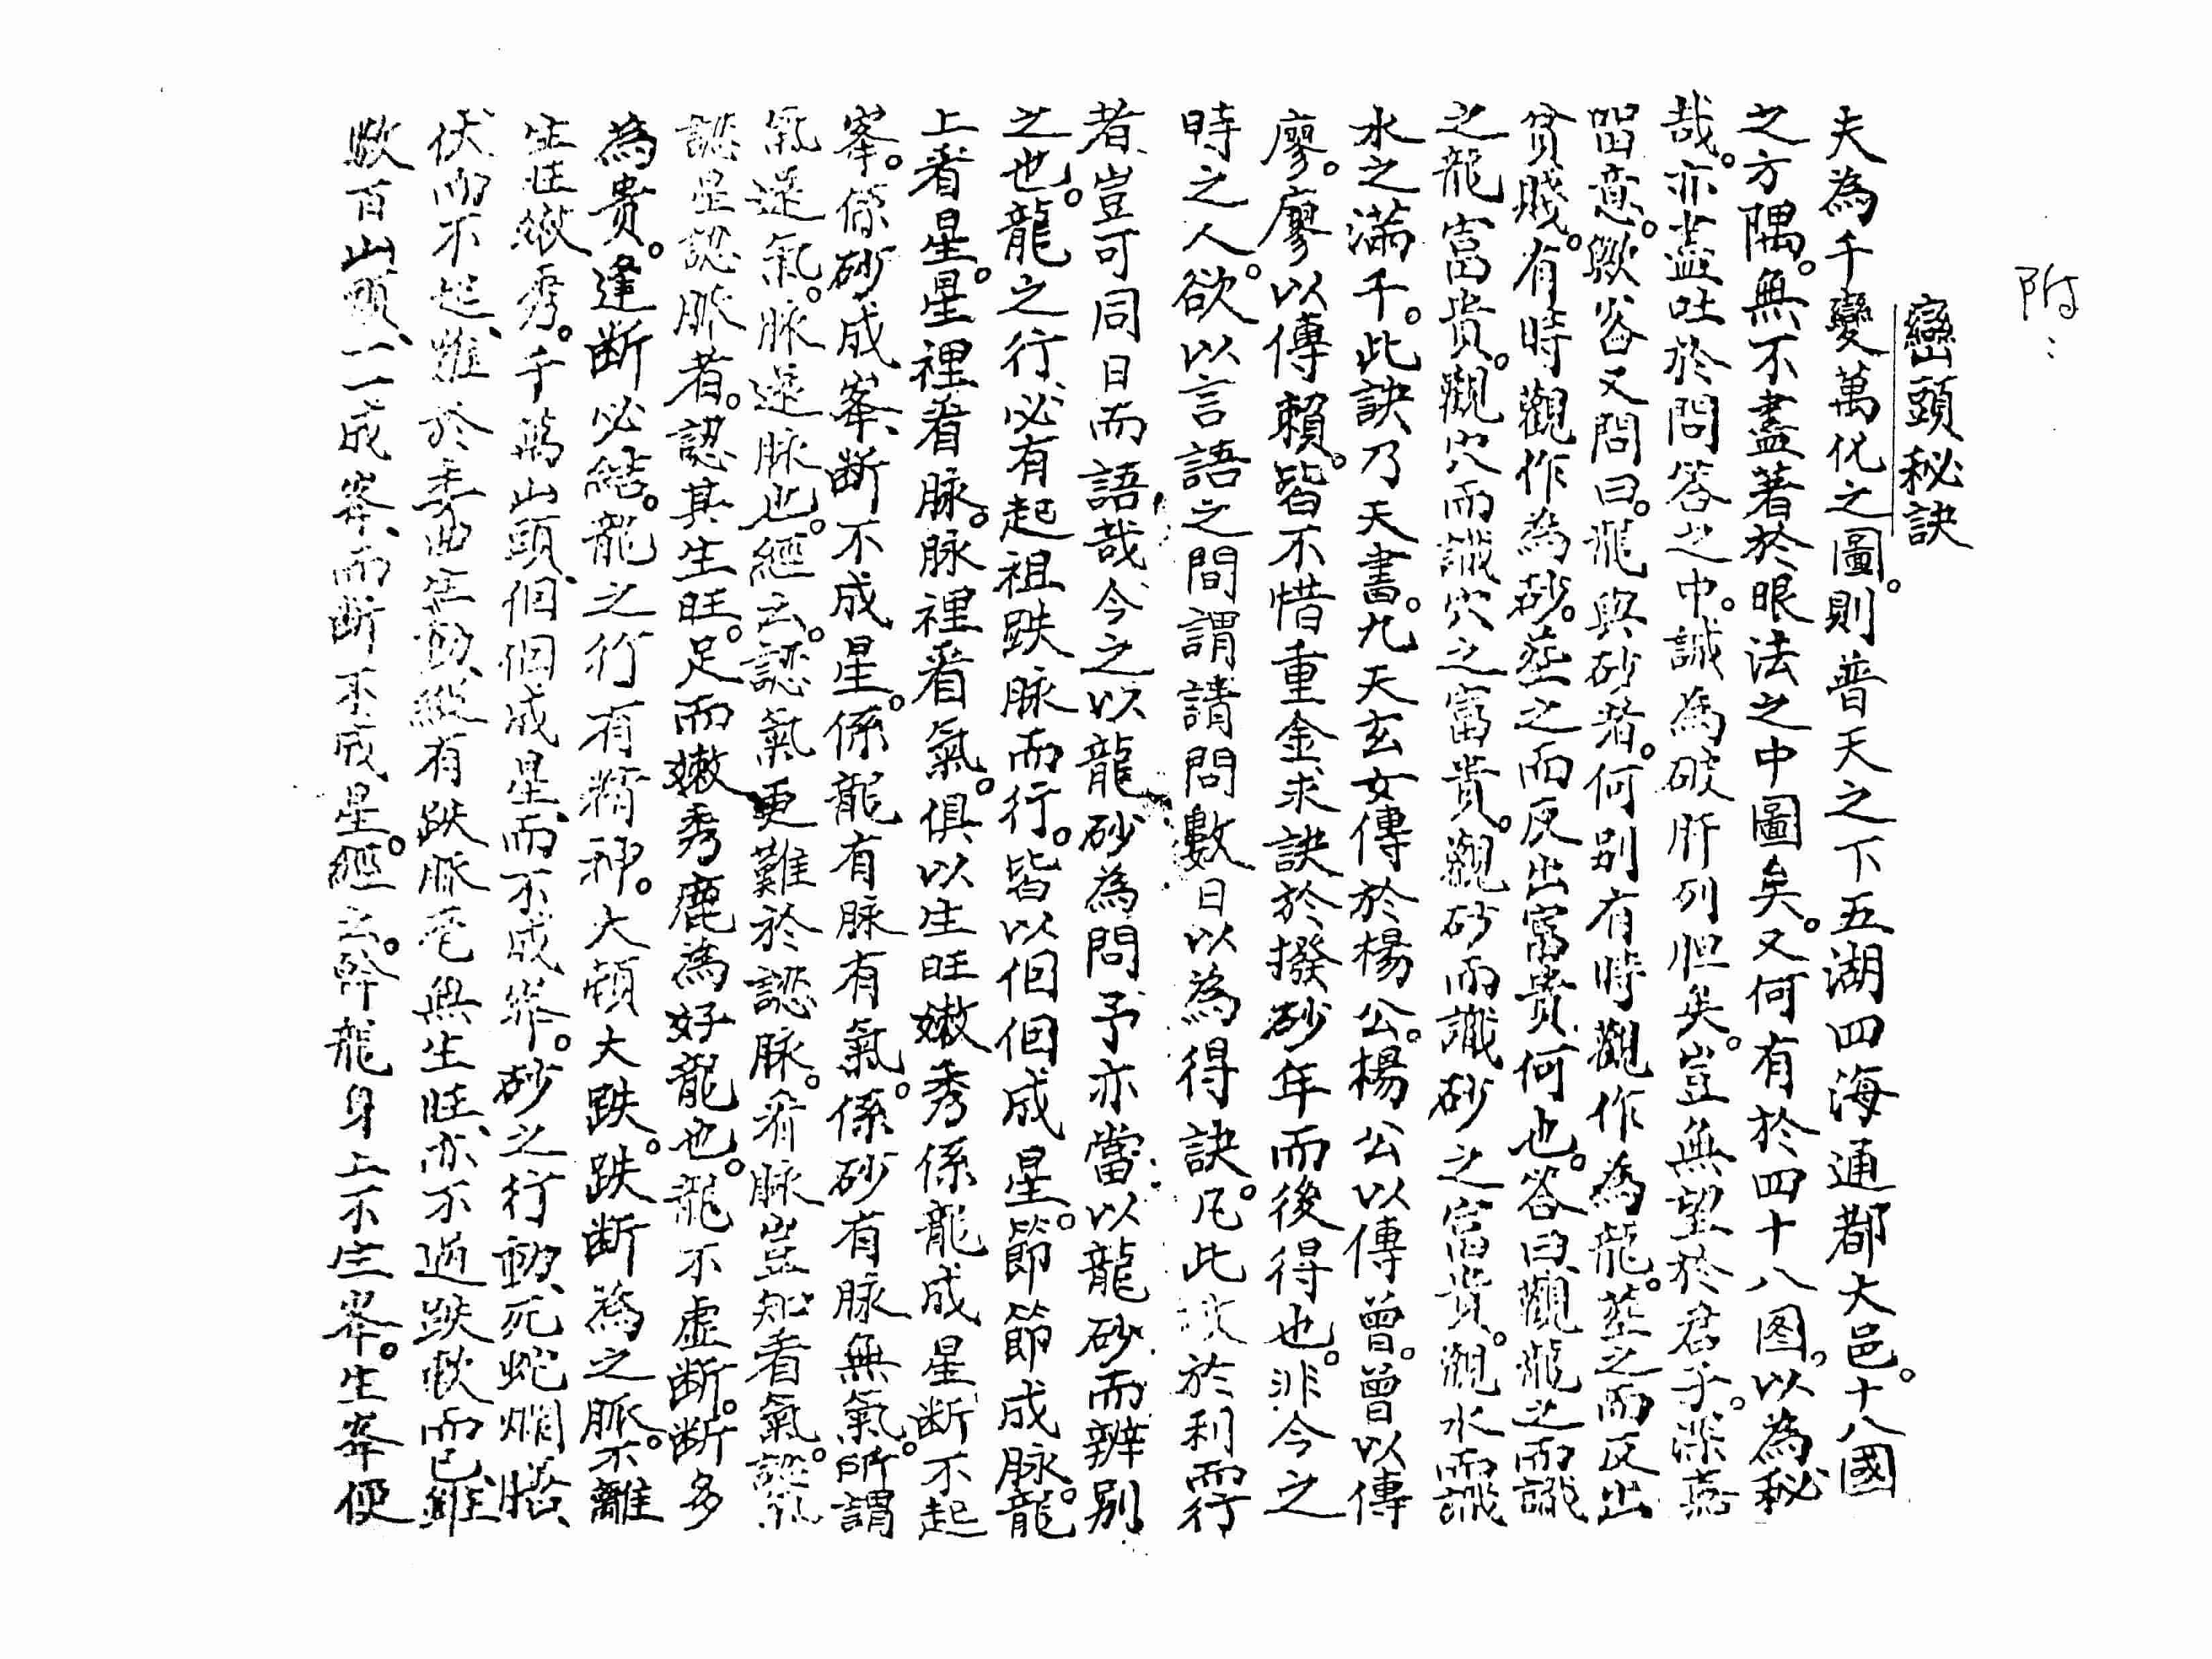 附：
巒頭秘訣
夫為千變萬化之圖。則普天之下五湖四海通都大邑。十八國
之方隅。無不盡著於眼法之中圖矣。又何有於四十八图。以為秘
哉。亦盡吐於問答之中。誠為破肝列胆矣。豈無望於君子。深嘉
畱意。歟客又問曰。龍與砂者。何别有時觀作為龍。塟之而反出
貧賤。有時觀作為砂。塟之而反出富貴何也。答曰觀龍之而識
之龍富貴。觀穴而識穴之富貴。觀砂而識砂之富貴。觀水而識
水之滿千。此訣乃天書。九天玄女傳於楊公。楊公以傳曾。曾以傳
廖。廖以傳賴。皆不惜重金求訣於撥砂年而後得也。非今之
時之人。欲以言語之間謂請問數日以為得訣。凡此於利而行
者豈可同日而語哉今之以龍砂為問予亦當以龍砂而辨别
之也。龍之行必有起祖跌脉而行。皆以個個成星。節節成脉。龍
上看星。星裡看脉。脉裡看氣。俱以生旺嫩秀係龍成星断不起
峯。係砂成峯断不成星。係龍有脉有氣。係砂有脉無氣。所謂
氣逆氣。脉逆脉也。經云。認氣更難於認脉。看脉豈知看氣。認氣
認星認脈者。認其生旺。足而嫩秀鹿為好龍也。龍不虚断。断多
為貴。逢断必結。龍之行有精神。大頓大跌。跌断為之脈。不離
生旺嫩秀。千萬山頭個個成星而不成峯。砂之行動死蛇爛膳
伏而不起雖於委曲生動縱有跌脈処無生旺亦不過跌軟而已雖
數百山頭一一成峯而断不成星。經云。幹龍身上不生峯。生峯便